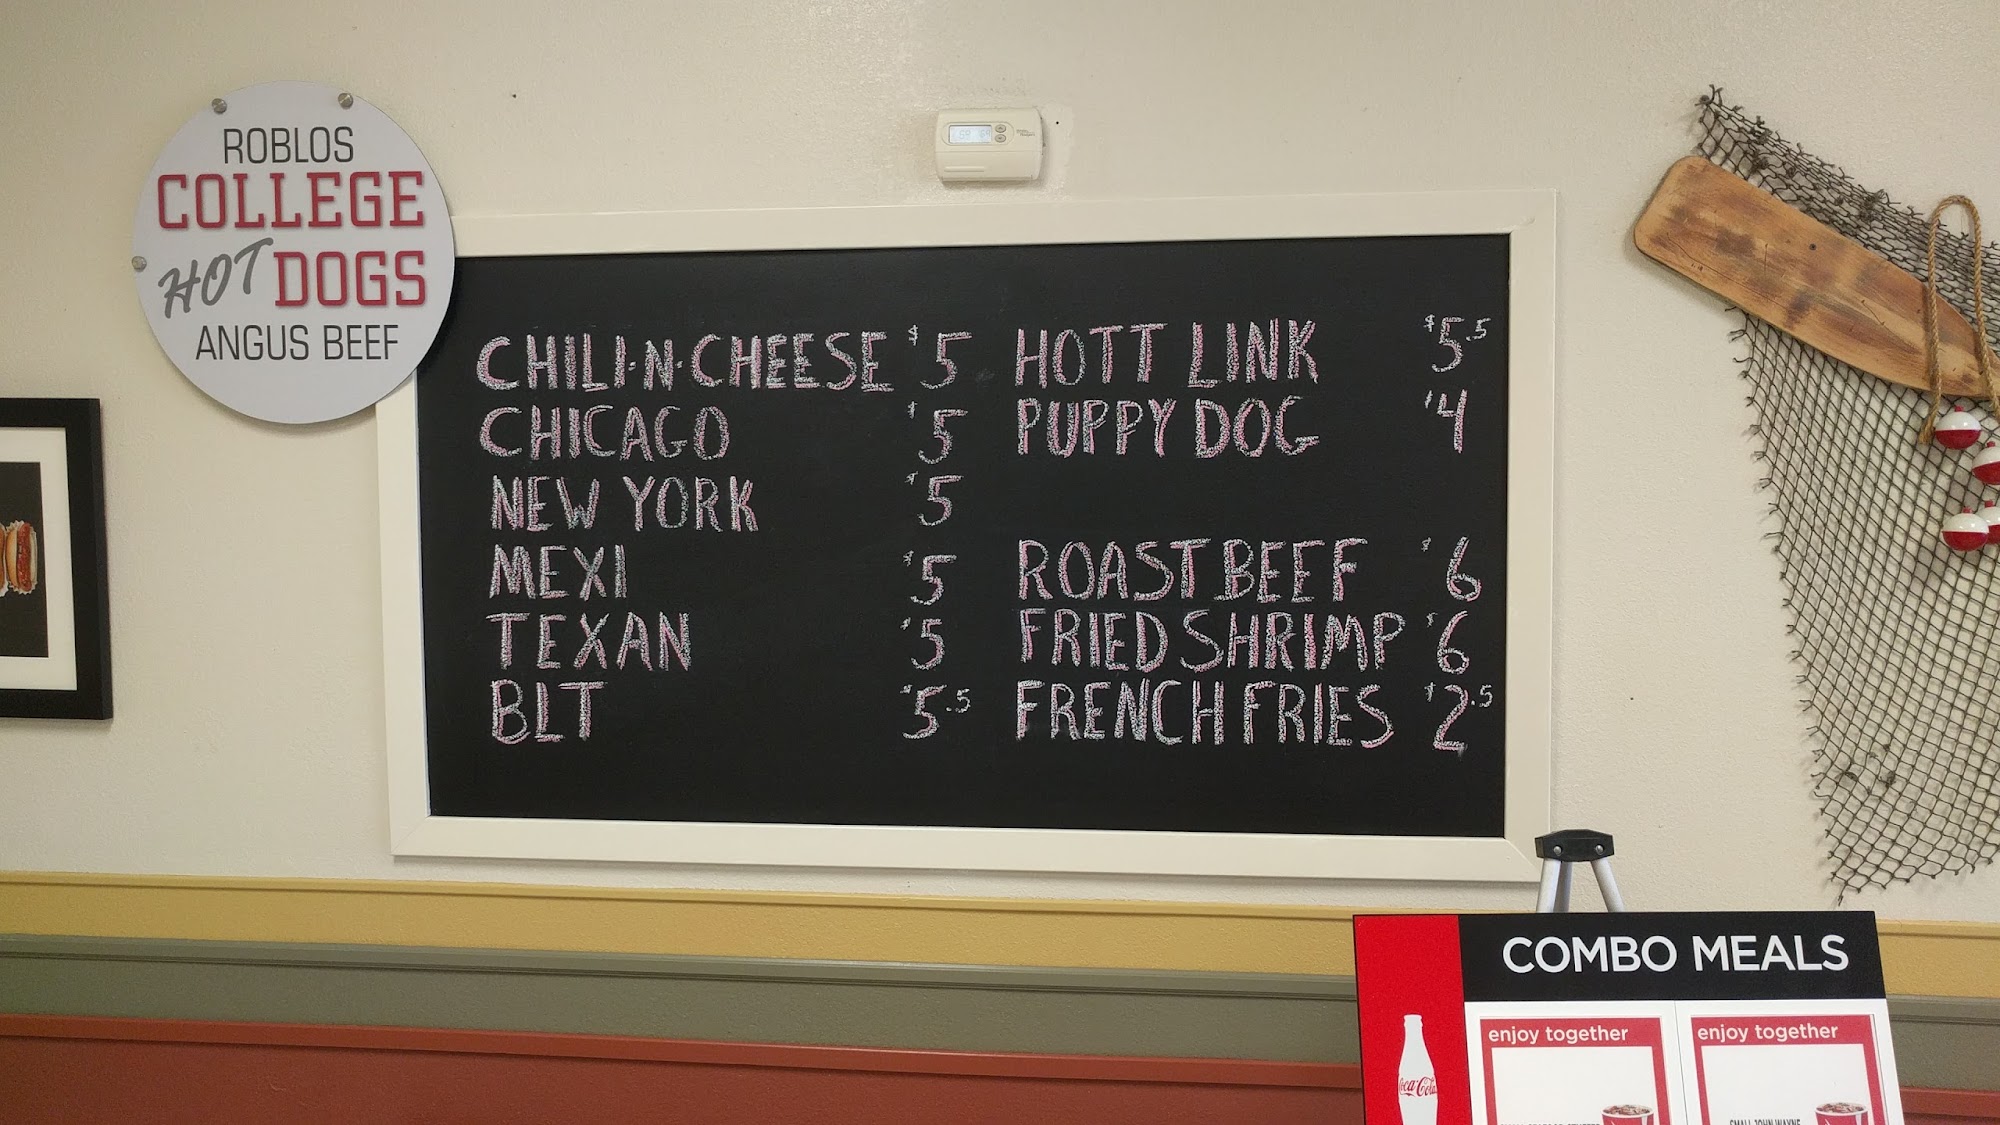 ROBLOS
COLLEGE
HOT DOGS
ANGUS BEEF
CHILI-N-CHEESE $5
CHICAGO $5
NEW YORK $5
MEXI $5
TEXAN $5
BLT $5.5
HOTT LINK $5.5
PUPPY DOG $4
ROAST BEEF $6
FRIED SHRIMP $6
FRENCH FRIES $2.5
COMBO MEALS
enjoy together
enjoy together
Coca-Cola
SMALL JOHN WAYNE